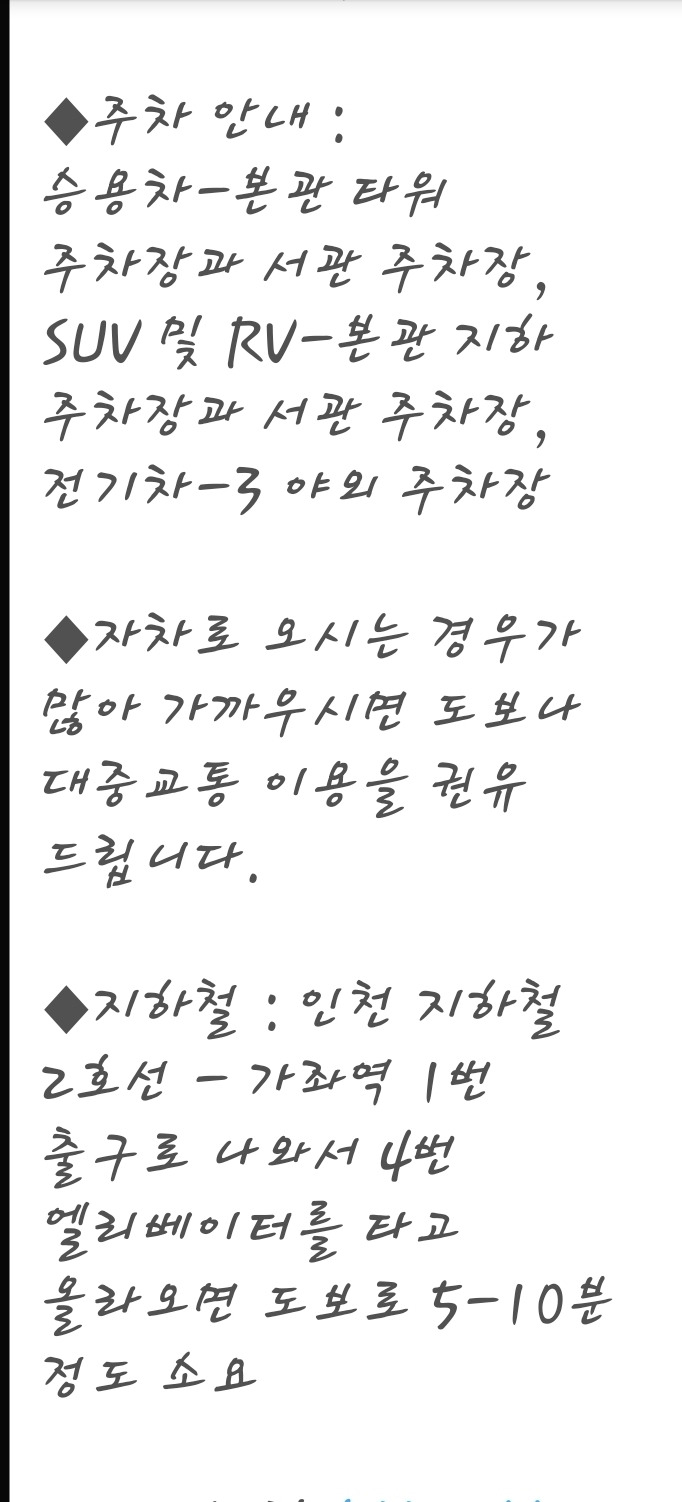 ◆주차 안내 :
승용차-본관 타워
주차장과 서관 주차장,
SUV 및 RV-본관 지하
주차장과 서관 주차장,
전기차-3 야외 주차장
◆자차로 오시는 경우가
많아 가까우시면 도보나
대중교통 이용을 권유
드립니다.
◆지하철 : 인천 지하철
2호선 - 가좌역 1번
출구로 나와서 4번
엘리베이터를 타고
올라오면 도보로 5-10분
정도 소요